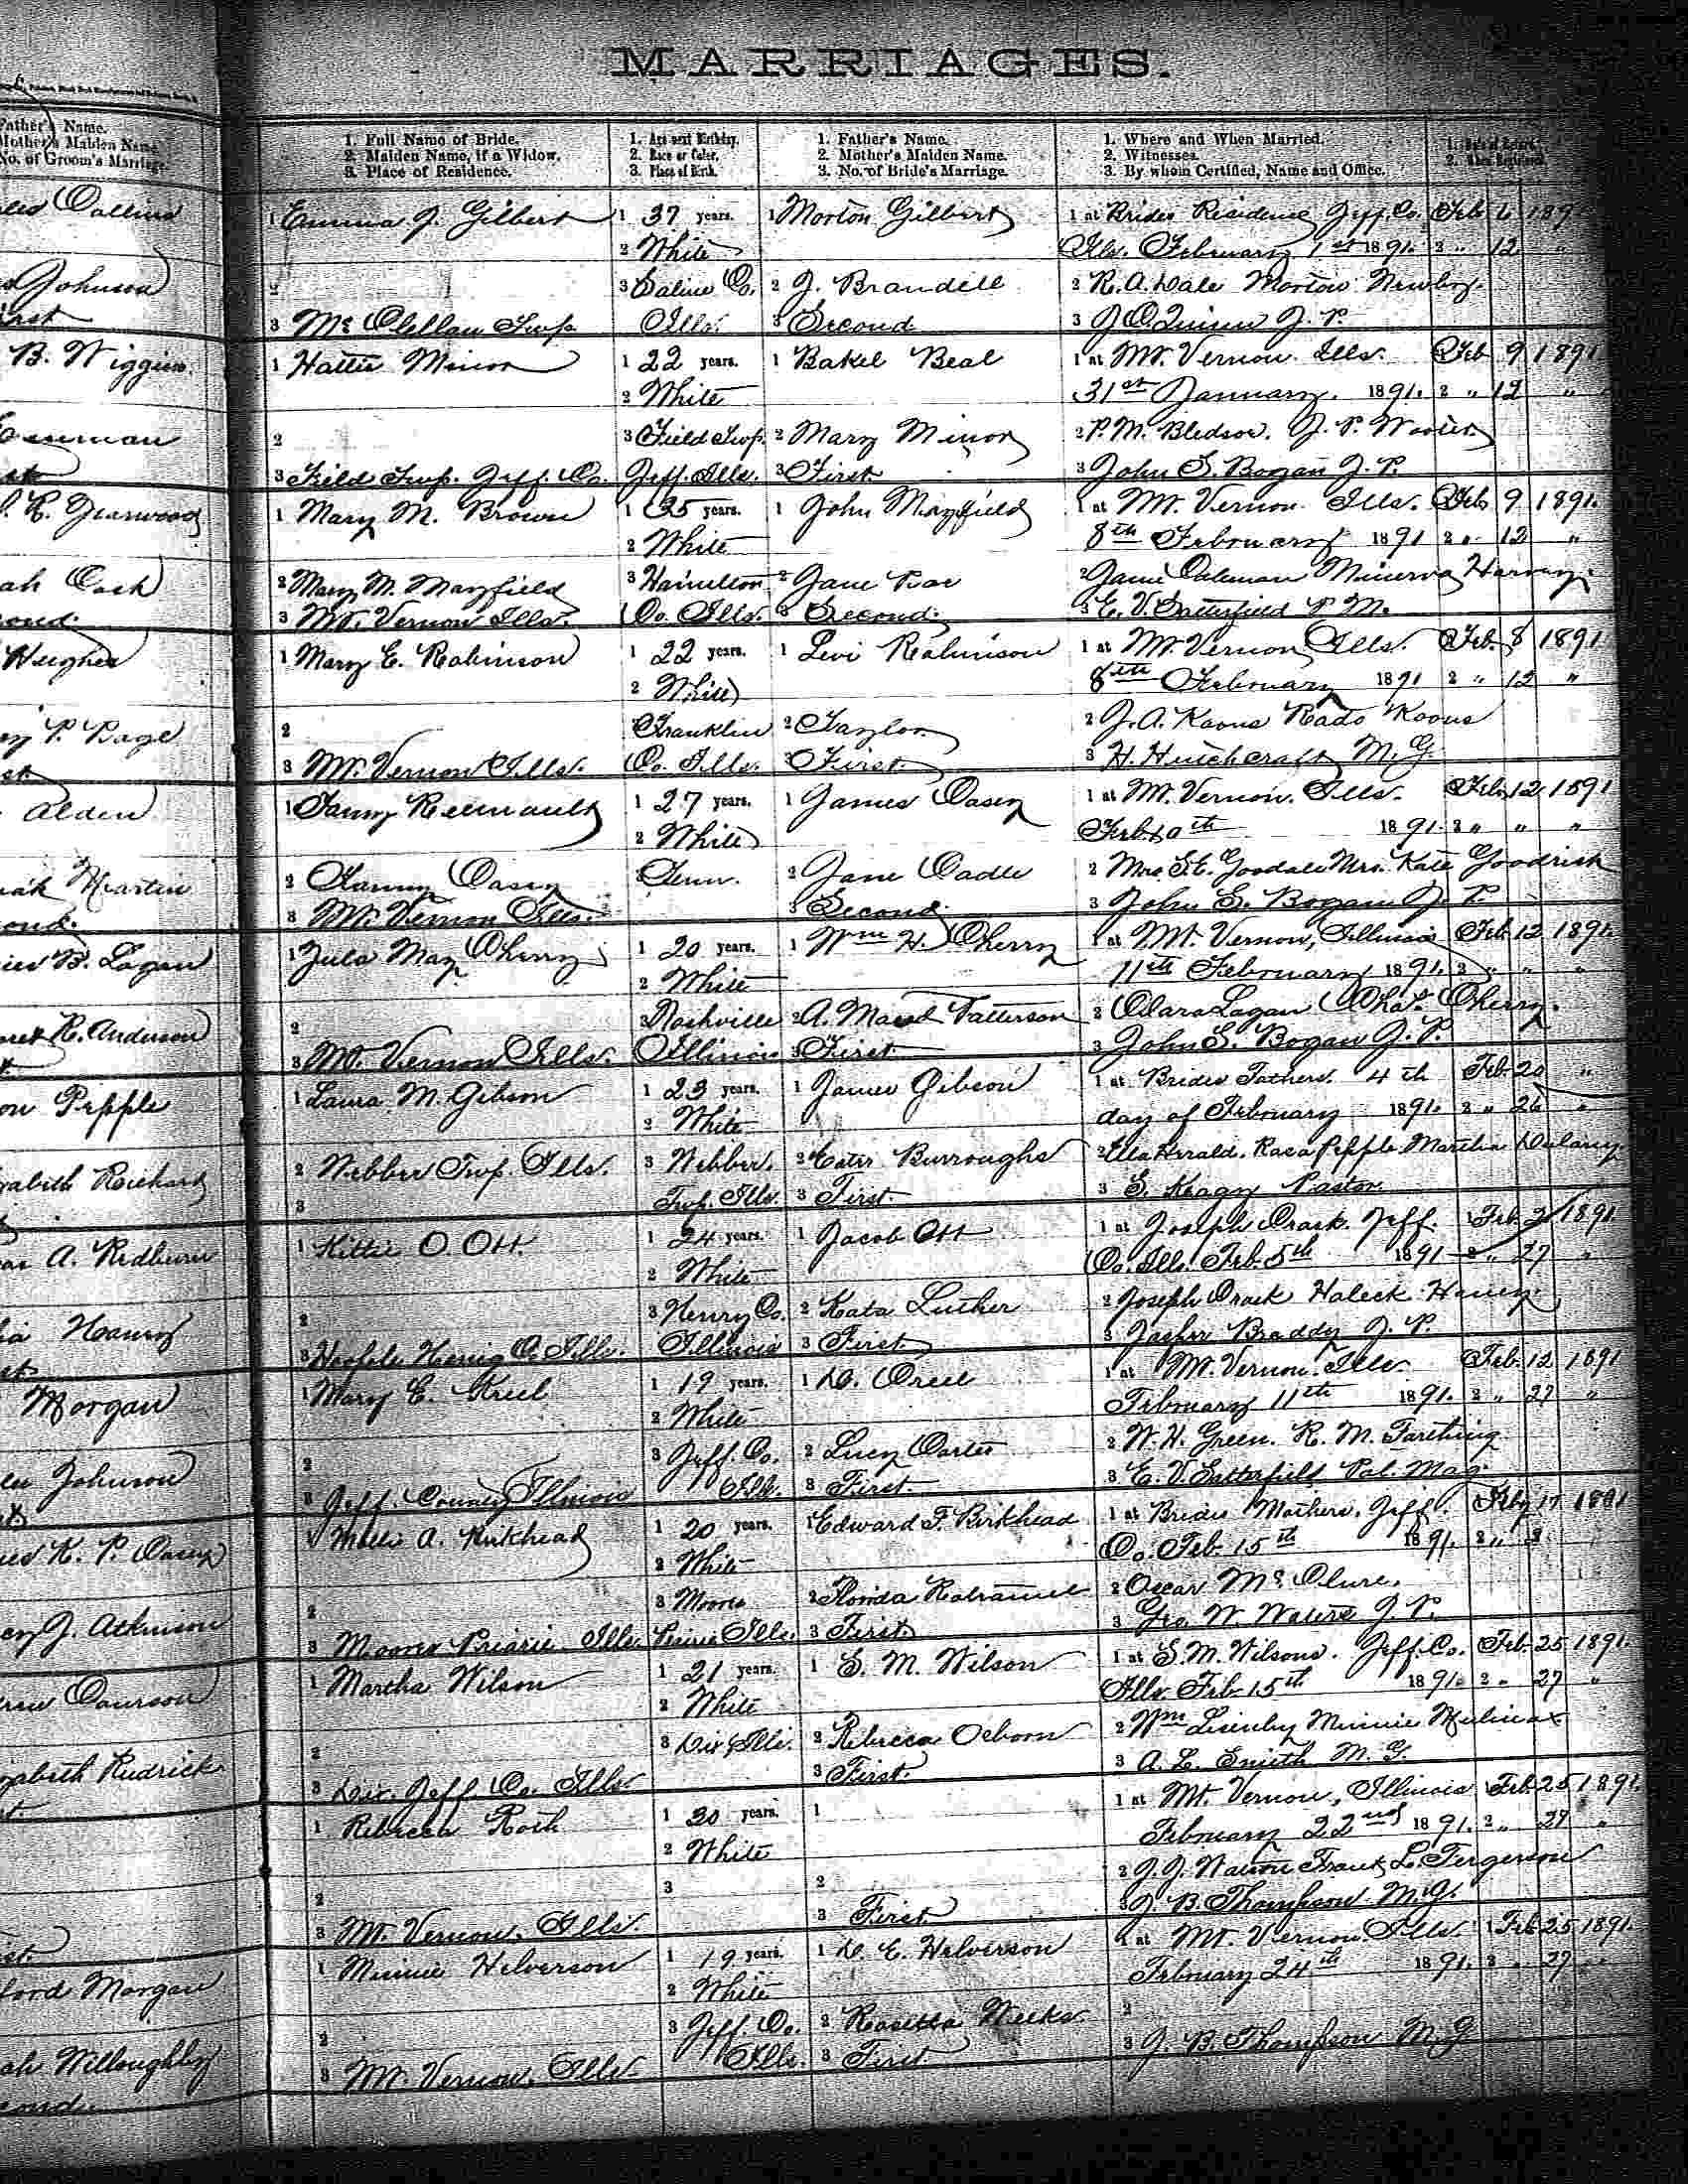 MARRIAGES.
Father's Name.
Mother's Maiden Name
No. of Groom's Marriage.
1. Full Name of Bride.
2. Maiden Name, if a Widow.
3. Place of Residence.
1. Age next Birthday.
2. Race or Color.
3. Place of Birth.
1. Father's Name.
2. Mother's Maiden Name.
3. No. of Bride's Marriage.
1. Where and When Married.
2. Witnesses.
3. By whom Certified, Name and Office.
Collins 1 Emma J. Gilbert 1 37 years. 1 Morton Gilbert 1 at Brides Residence Jeff. Co. Feb 6 189
2 White Ills. February 1st 1891. 2 " 12 "
Johnson 2 3 Saline Co. 2 J. Brandell 2 R. A. Dale Morton Newby.
3 Mc Clellan Twp. Ills. 3 Second 3 J. O. Quinn J. P.
B. Wiggins 1 Hattie Minor 1 22 years. 1 Bakel Beal 1 at Mt. Vernon Ills. Feb 9 1891
2 White 31st January. 1891. 2 " 12 "
2 3 Field Twp. 2 Mary Minor 2 P. M. Bledsoe. J. P.
3 Field Twp. Jeff. Co. Jeff. Ills. 3 First. 3 John S. Bogan J. P.
Yearwood 1 Mary M. Brown 1 35 years. 1 John Mayfield 1 at Mt. Vernon Ills. Feb 9 1891.
2 White 8th February 1891 2 " 12 "
Cash 2 Mary M. Mayfield 3 Hamilton 2 Jane 2 Jane Coleman Minerva
3 Mt. Vernon Ills. Co. Ills. 3 Second. 3 E. V. Satterfield P. M.
Hughes 1 Mary E. Robinson 1 22 years. 1 Levi Robinson 1 at Mt. Vernon Ills. Feb. 8 1891
2 White 8th February 1891 2 " 12 "
P. Page 2 Franklin 2 Taylor 2 J. A. Koons Koons
3 Mt. Vernon Ills. Co. Ills. First. 3 H. Hutchcraft M. G.
Alden 1 Fanny 1 27 years. 1 James Casey 1 at Mt. Vernon. Ills. Feb. 12 1891
2 White Feb. 10th 1891. 2 " " "
Martin 2 Fanny Casey Tenn. 2 Jane Cadle 2 Mrs. S. E. Goodale Mrs. Kate Goodrich
3 Mt. Vernon Ills. 3 Second. 3 John S. Bogan J. P.
B. Logan 1 Zula May Cherry 1 20 years. 1 Wm H. Cherry 1 at Mt. Vernon, Illinois Feb 12 1891.
2 White 11th February 1891. 2 " " "
R. Anderson 2 3 Nashville 2 A. Maud Patterson 2 Clara Logan Chas. Cherry.
3 Mt. Vernon Ills. Illinois 3 First. 3 John S. Bogan J. P.
Pepple 1 Laura M. Gibson 1 23 years. 1 James Gibson 1 at Brides Fathers. 4th Feb 20 "
2 White day of February 1891. 2 " 26 "
Reichard 2 Webber Twp. Ills. 3 Webber. 2 Burroughs 2 Ella Herald. Rosa Pepple Martha Dulany
3 Twp. Ills. 3 First. 3 S. Keagy Pastor.
A. Redburn 1 Kittie O. Ott. 1 24 years. 1 Jacob Ott 1 at Joseph Jeff. Feb. 1891.
2 White Co. Ills. Feb. 5th 1891 2 " 27 "
2 3 Henry Co. 2 Kata Luther 2 Joseph
3 Illinois 3 First. 3 Jasper Braddy J. P.
Morgan 1 Mary E. Kreel 1 19 years. 1 D. Creel 1 at Mt. Vernon. Ills. Feb. 12 1891
2 White February 11th 1891. 2 " 27 "
Johnson 2 3 Jeff. Co. 2 Lucy Carter 2 W. H. Green. R. M. Farthing
3 Jeff. County Illinois Ills. 3 First. 3 E. V. Satterfield Pol. Mag.
K. P. Casey 1 Mollie A. Birkhead 1 20 years. 1 Edward F. Birkhead 1 at Brides Mothers. Jeff. Feby 17 1891
2 White Co. Feb. 15th 1891. 2 "
J. Atkinson 2 3 Moores 2 Florida 2 Oscar Mc Clure.
3 Moores Priarie Ills. Prairie Ills. 3 First. 3 Geo. W. Waters J. P.
1 Martha Wilson 1 21 years. 1 S. M. Wilson 1 at S. M. Wilsons. Jeff. Co. Feb. 25 1891.
2 White Ills. Feb. 15th 1891. 2 " 27 "
Rudrick 2 3 Dix Ills. 2 Rebecca Osborn 2 Wm Minnie Mulinax
3 Dix. Jeff. Co. Ills. 3 First. 3 A. L. Smith M. G.
1 Rebecca Roth 1 30 years. 1 1 at Mt. Vernon, Illinois Feb. 25 1891.
2 White February 22nd 1891. 2 " 27 "
2 3 2 2 J. J. Frank L. Fergerson
3 Mt. Vernon, Ills. 3 First. 3 J. B. Thompson M. G.
Morgan 1 Minnie Helverson 1 19 years. 1 D. E. Helverson 1 at Mt. Vernon Ills. 1 Feb 25 1891.
2 White February 24th 1891. 2 " 27
Willoughby 2 3 Jeff. Co. 2 Rosetta Weeks 2
3 Mt. Vernon, Ills. Ills. 3 First. 3 J. B. Thompson M. G